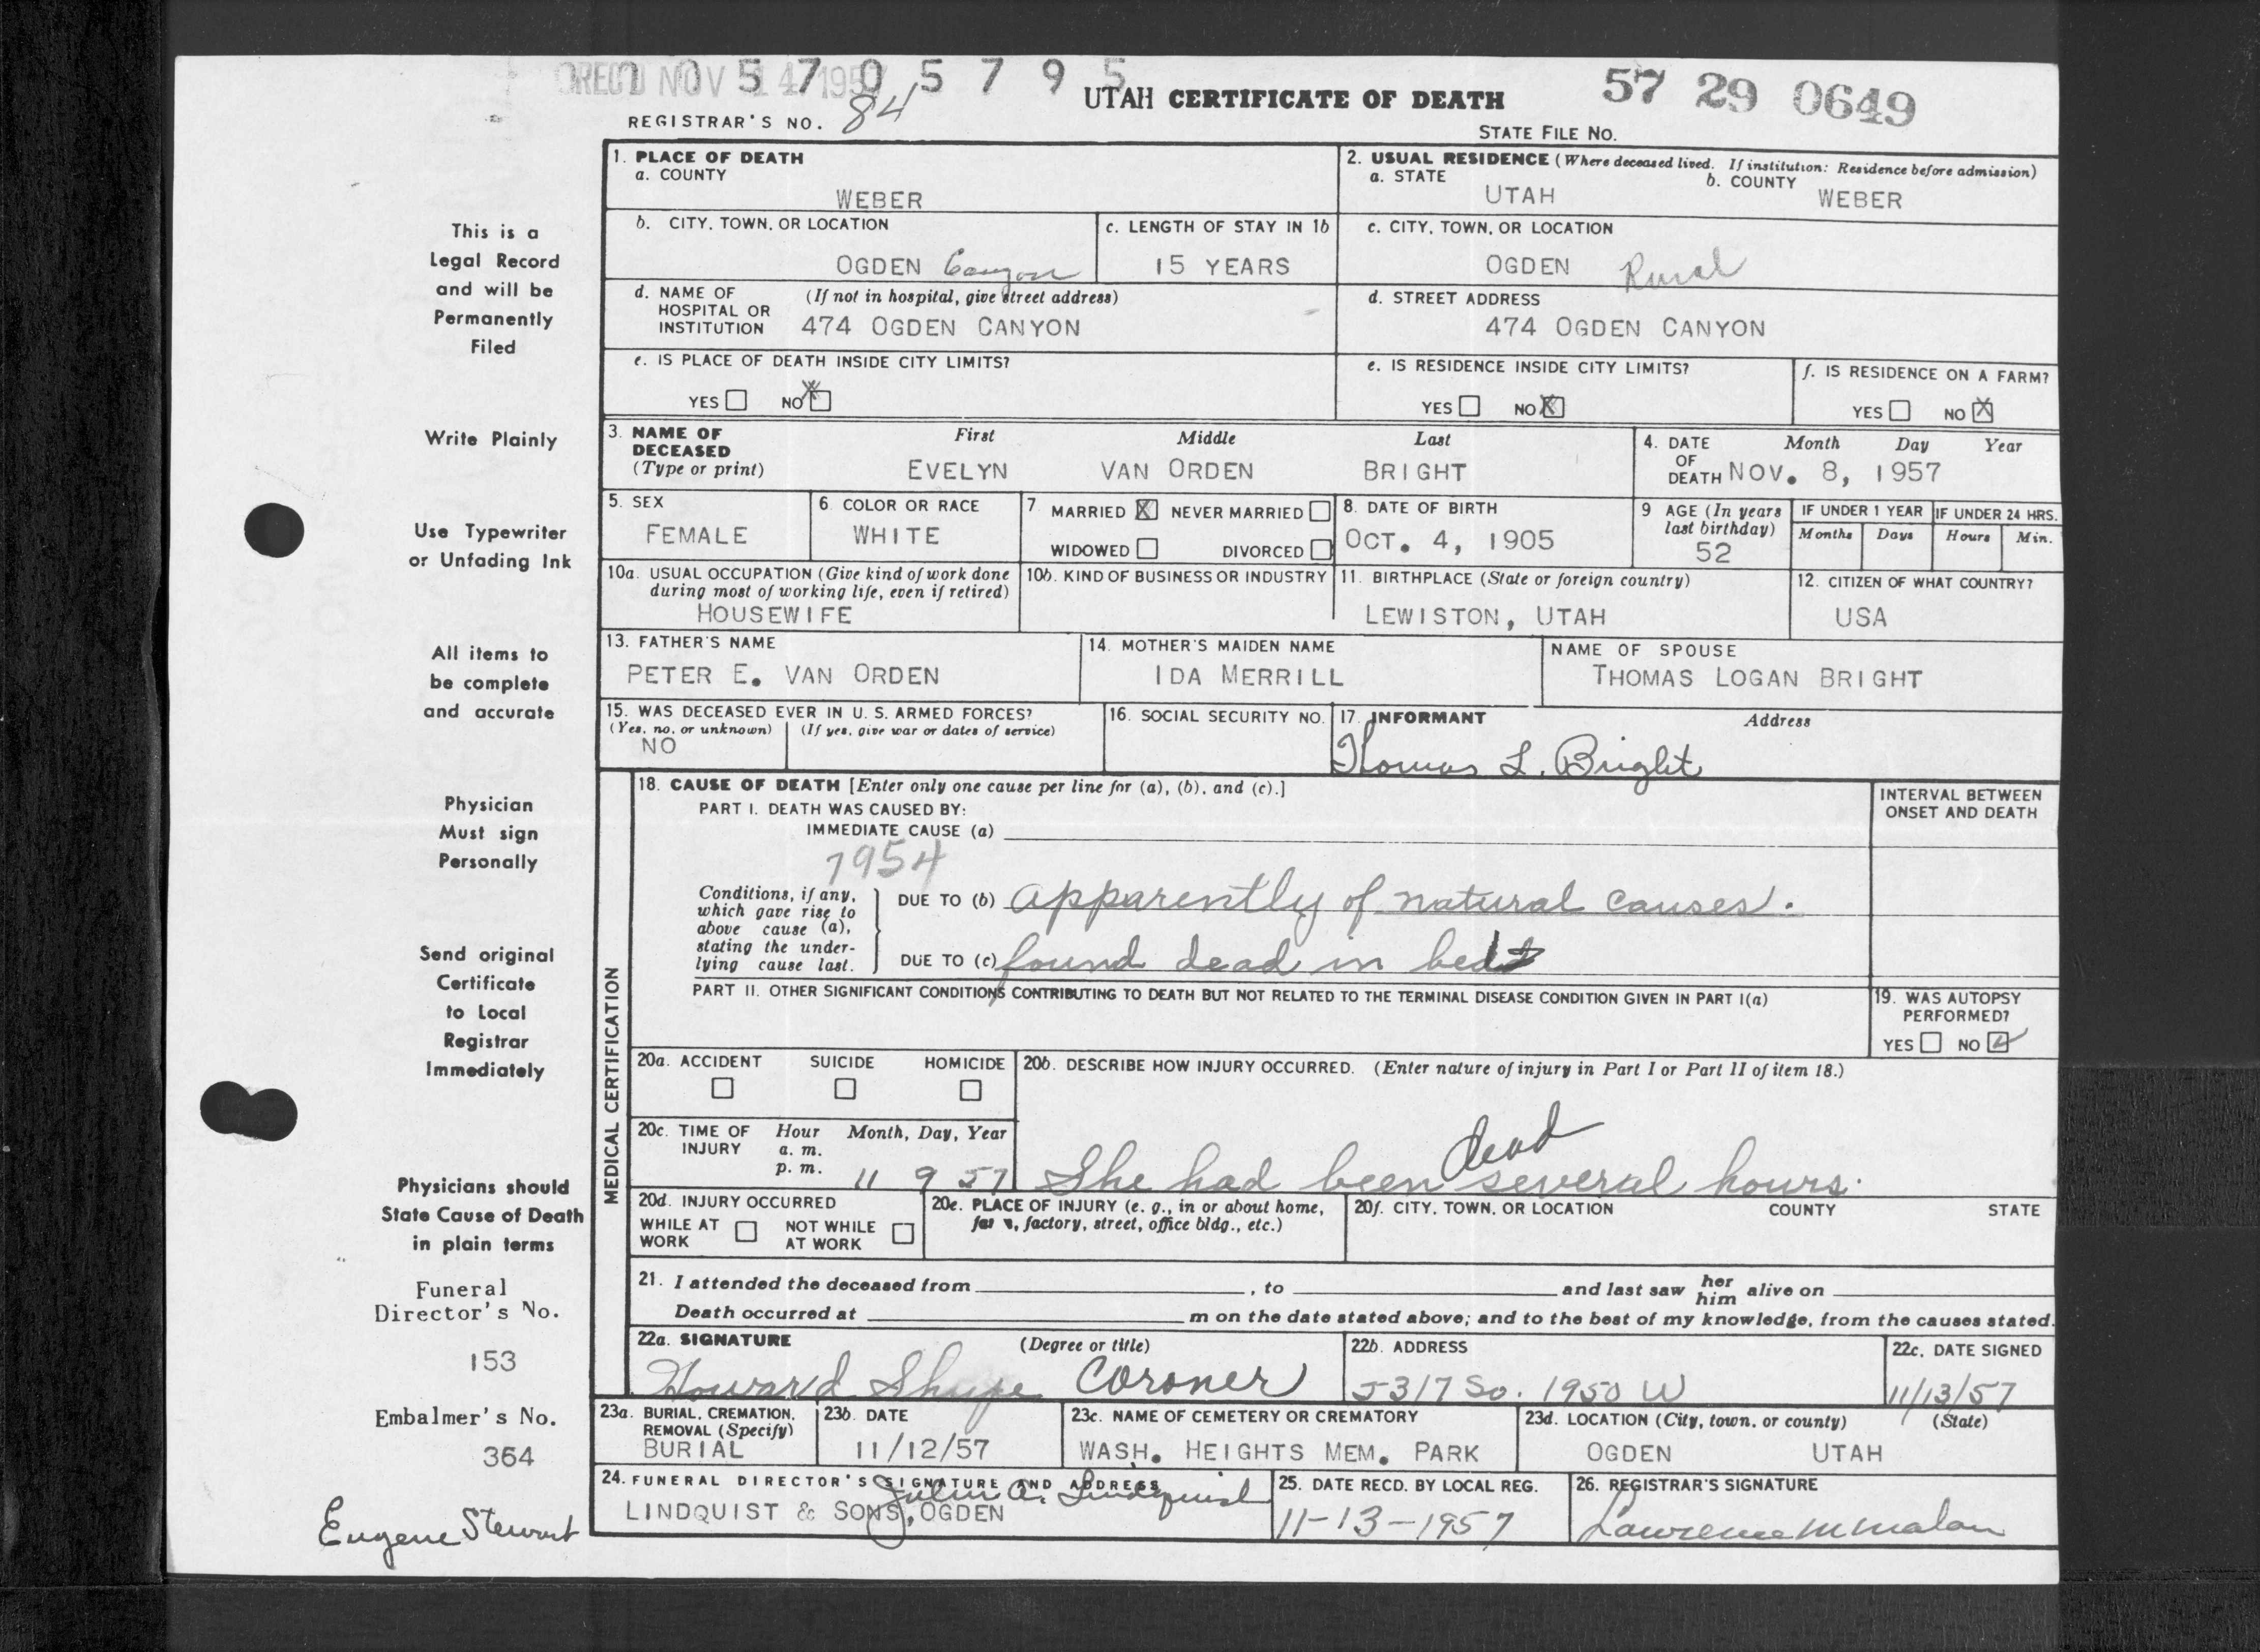 REC'D NOV 14 1957
1 0 5 7 0 5 7 9 5
UTAH CERTIFICATE OF DEATH
57 29 0649
REGISTRAR'S NO. 84
STATE FILE NO.
This is a
Legal Record
and will be
Permanently
Filed
Write Plainly
Use Typewriter
or Unfading Ink
All items to
be complete
and accurate
Physician
Must sign
Personally
Send original
Certificate
to Local
Registrar
Immediately
Physicians should
State Cause of Death
in plain terms
Funeral
Director's No.
153
Embalmer's No.
364
Eugene Stewart
1. PLACE OF DEATH
a. COUNTY
WEBER
2. USUAL RESIDENCE (Where deceased lived. If institution: Residence before admission)
a. STATE UTAH b. COUNTY WEBER
b. CITY, TOWN, OR LOCATION
OGDEN Canyon
c. LENGTH OF STAY IN 1b
15 YEARS
c. CITY, TOWN, OR LOCATION
OGDEN Rural
d. NAME OF (If not in hospital, give street address)
HOSPITAL OR
INSTITUTION 474 OGDEN CANYON
d. STREET ADDRESS
474 OGDEN CANYON
e. IS PLACE OF DEATH INSIDE CITY LIMITS?
YES NO X
e. IS RESIDENCE INSIDE CITY LIMITS?
YES NO X
f. IS RESIDENCE ON A FARM?
YES NO X
3. NAME OF DECEASED (Type or print)
First Middle Last
EVELYN VAN ORDEN BRIGHT
4. DATE OF DEATH
Month Day Year
NOV. 8, 1957
5. SEX
FEMALE
6 COLOR OR RACE
WHITE
7. MARRIED X NEVER MARRIED
WIDOWED DIVORCED
8. DATE OF BIRTH
OCT. 4, 1905
9 AGE (In years
last birthday)
52
IF UNDER 1 YEAR
Months Days
IF UNDER 24 HRS.
Hours Min.
10a. USUAL OCCUPATION (Give kind of work done
during most of working life, even if retired)
HOUSEWIFE
10b. KIND OF BUSINESS OR INDUSTRY
11. BIRTHPLACE (State or foreign country)
LEWISTON, UTAH
12. CITIZEN OF WHAT COUNTRY?
USA
13. FATHER'S NAME
PETER E. VAN ORDEN
14. MOTHER'S MAIDEN NAME
IDA MERRILL
NAME OF SPOUSE
THOMAS LOGAN BRIGHT
15. WAS DECEASED EVER IN U. S. ARMED FORCES?
(Yes, no, or unknown) (If yes, give war or dates of service)
NO
16. SOCIAL SECURITY NO.
17. INFORMANT Address
Thomas L. Bright
MEDICAL CERTIFICATION
18. CAUSE OF DEATH [Enter only one cause per line for (a), (b), and (c).]
PART I. DEATH WAS CAUSED BY:
IMMEDIATE CAUSE (a)
INTERVAL BETWEEN
ONSET AND DEATH
7954
Conditions, if any,
which gave rise to
above cause (a),
stating the under-
lying cause last.
DUE TO (b) apparently of natural causes.
DUE TO (c) found dead in bed
PART II. OTHER SIGNIFICANT CONDITIONS CONTRIBUTING TO DEATH BUT NOT RELATED TO THE TERMINAL DISEASE CONDITION GIVEN IN PART I(a)
19. WAS AUTOPSY
PERFORMED?
YES NO
20a. ACCIDENT SUICIDE HOMICIDE
20b. DESCRIBE HOW INJURY OCCURRED. (Enter nature of injury in Part I or Part II of item 18.)
20c. TIME OF INJURY
Hour Month, Day, Year
a. m.
p. m. 11 9 57
dead
She had been several hours.
20d. INJURY OCCURRED
WHILE AT WORK NOT WHILE AT WORK
20e. PLACE OF INJURY (e. g., in or about home,
farm, factory, street, office bldg., etc.)
20f. CITY, TOWN, OR LOCATION COUNTY STATE
21. I attended the deceased from , to and last saw her him alive on
Death occurred at m on the date stated above; and to the best of my knowledge, from the causes stated.
22a. SIGNATURE (Degree or title)
Howard Shupe Coroner
22b. ADDRESS
5317 So. 1950 W
22c. DATE SIGNED
11/13/57
23a. BURIAL, CREMATION,
REMOVAL (Specify)
BURIAL
23b. DATE
11/12/57
23c. NAME OF CEMETERY OR CREMATORY
WASH. HEIGHTS MEM. PARK
23d. LOCATION (City, town, or county) (State)
OGDEN UTAH
24. FUNERAL DIRECTOR'S SIGNATURE AND ADDRESS
John A. Lindquist
LINDQUIST & SONS, OGDEN
25. DATE RECD. BY LOCAL REG.
11-13-1957
26. REGISTRAR'S SIGNATURE
Lawrence M Malan